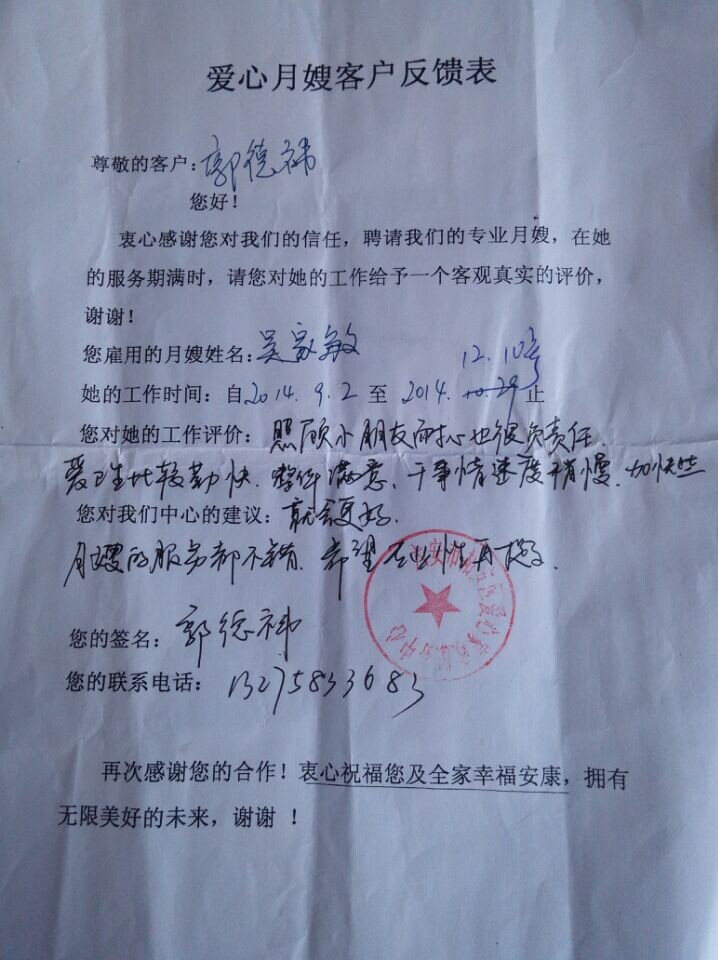 爱心月嫂客户反馈表
尊敬的客户：郭德祎
您好！
衷心感谢您对我们的信任，聘请我们的专业月嫂，在她
的服务期满时，请您对她的工作给予一个客观真实的评价，
谢谢！
您雇用的月嫂姓名：吴家敏
12.10号
她的工作时间：自2014.9.2至2014.10.29止
您对她的工作评价：照顾小朋友耐心也很负责任.
爱卫生比较勤快.整体满意、干事情速度稍慢.加快些
您对我们中心的建议：就会更好.
月嫂的服务都不错.希望在业性再
您的签名：郭德祎
您的联系电话：13275833683
再次感谢您的合作！衷心祝福您及全家幸福安康，拥有
无限美好的未来，谢谢！